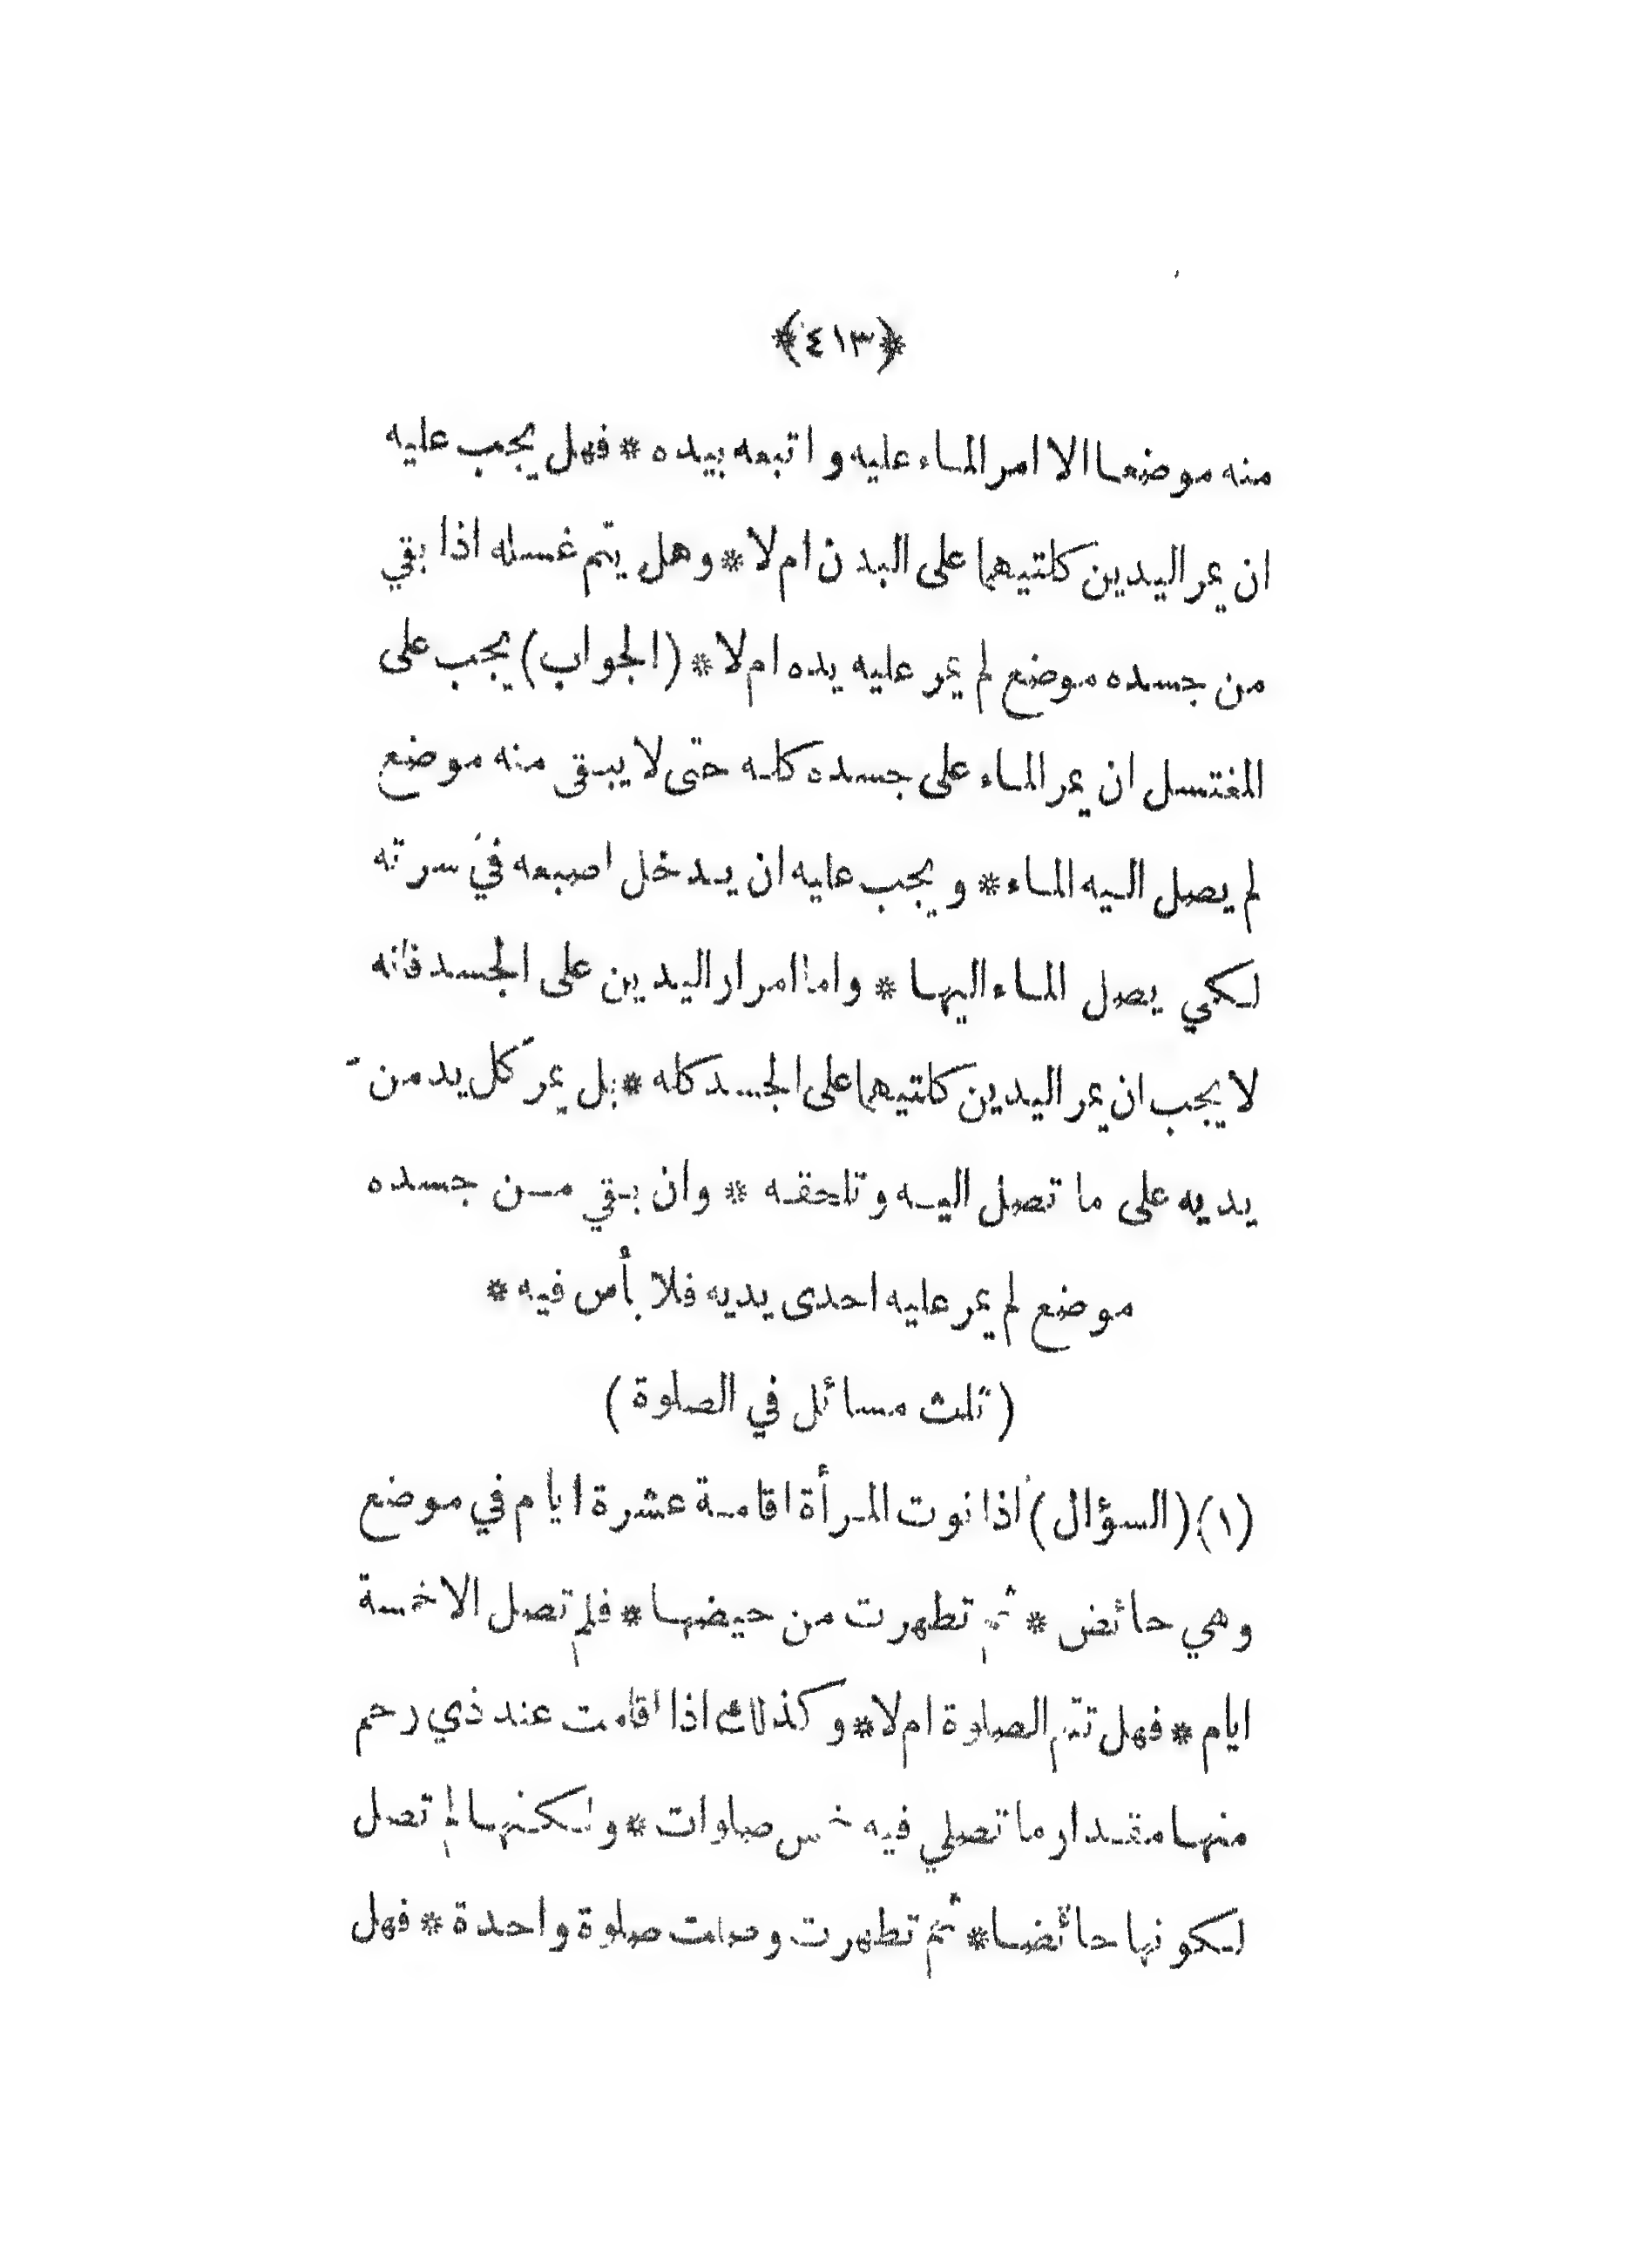 ﴿٤١٣﴾
منه موضعا الا امر الماء عليه واتبعه بيده * فهل يجب عليه
ان يمر اليدين كلتيهما على البدن ام لا * وهل يتم غسله اذا بقي
من جسده موضع لم يمر عليه يده ام لا * (الجواب) يجب على
المغتسل ان يمر الماء على جسده كله حتى لا يبقى منه موضع
لم يصل اليه الماء * ويجب عليه ان يدخل اصبعه في سرته
لكي يصل الماء اليها * واما امرار اليدين على الجسد فانه
لا يجب ان يمر اليدين كلتيهما على الجسد كله * بل يمر كل يد من
يديه على ما تصل اليه وتلحقه * وان بقي من جسده
موضع لم يمر عليه احدى يديه فلا بأس فيه *
(ثلث مسائل في الصلوة)
(١) (السؤال) اذا نوت المرأة اقامة عشرة ايام في موضع
وهي حائض * ثم تطهرت من حيضها * فلم تصل الا خمسة
ايام * فهل تتم الصلوة ام لا * وكذلك اذا اقامت عند ذي رحم
منها مقدار ما تصلي فيه خمس صلوات * ولكنها لم تصل
لكونها حائضا * ثم تطهرت وصلت صلوة واحدة * فهل